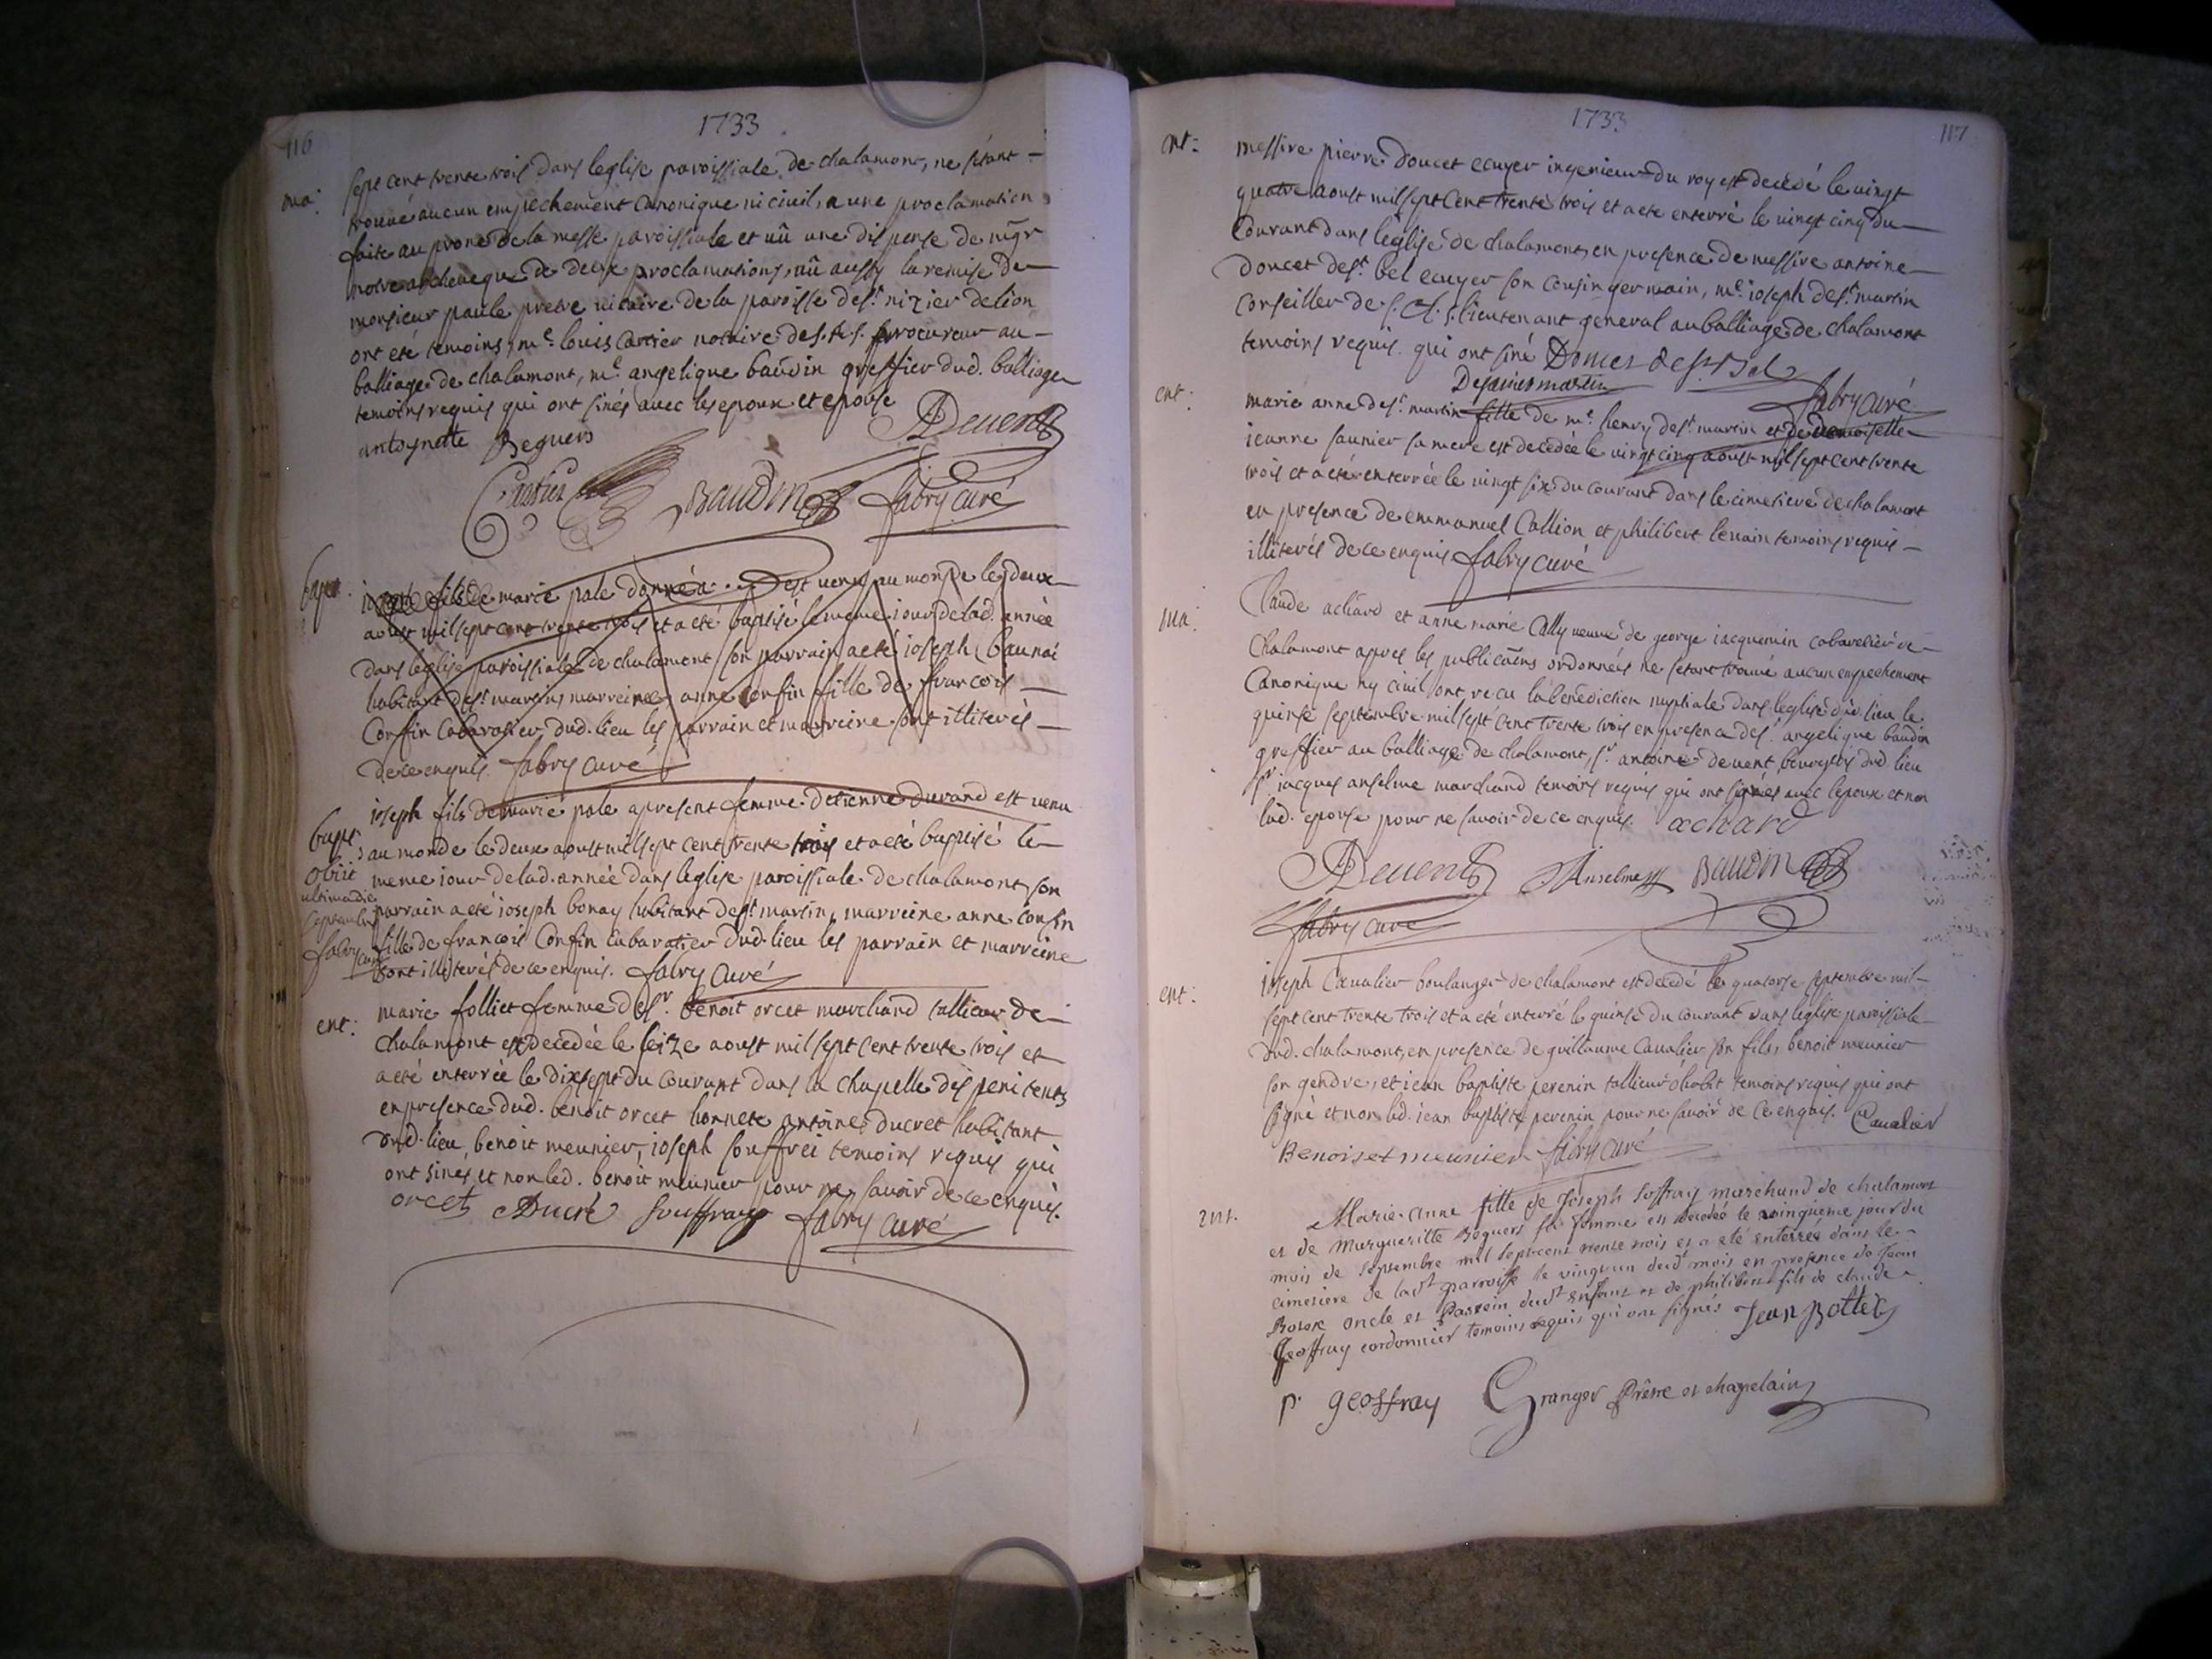 116
1733
ma:
sept cent trente trois dans leglise paroissiale de chalamont, ne sétant
trouvé aucun empechement canonique ni civil, a une proclamation
faite au prone de la messe paroissiale et vû une dispense de mgr
notre archeveque de deux proclamations, vû aussy la remise de
monsieur paule pretre vicaire de la paroisse de st nizier de lion
ont eté temoins, me louis cartier notaire de s.a.s. procureur au
balliage de chalamont, me angelique baudin greffier dud. balliage
temoins requis qui ont sinés avec les epoux et epouse
antoynette Beguers ADevent
Cartier Baudin fabry curé
bapt:
fils de marie pale donnée est venu au monde le deux
aoust mil sept cent trente trois et a eté baptisé le meme iour de lad. année
dans leglise paroissiale de chalamont, son parrain a eté ioseph baunai
habitant de st martin, marreine anne confin fille de francois
Confin cabaratier dud. lieu les parrain et marreine sont illiterés
de ce enquis. fabry curé
bapt:
ioseph fils de marie pale apresent femme detienne durand est venu
au monde le deux aoust mil sept cent trente trois et a eté baptisé le
meme iour de lad. année dans leglise paroissiale de chalamont, son
parrain a eté ioseph bonay habitant de st martin, marreine anne confin
fille de francois Confin cabaratier dud. lieu les parrain et marreine
sont illiterés de ce enquis. fabry curé
obiit
ultima die
septembris
fabry curé
ent:
marie folliet femme de sr. benoit orcet marchand tallieur de
chalamont est decedée le seize aoust mil sept cent trente trois et
a eté enterrée le dixsept du courant dans la chapelle des penitents
en presence dud. benoit orcet honnete antoine ducret habitant
dud. lieu, benoit meunier, ioseph souffrei temoins requis qui
ont sinés et non led. benoit meunier pour ne savoir de ce enquis.
orcet Ducré souffray fabry curé
1733
117
ent:
messire pierre doucet ecuyer ingenieur du roy est decédé le vingt
quatre aoust mil sept cent trente trois et a eté enterré le vingt cinq du
Courant dans leglise de chalamont, en presence de messire antoine
doucet de st. bel ecuyer son cousin germain, me. ioseph de st. martin
conseiller de s.A.s. lieutenant general au balliage de chalamont
temoins requis qui ont siné Doucet de st Bel
Desaintmartin fabry curé
ent:
marie anne de st. martin fille de me henry de st. martin et de demoiselle
ieanne saunier sa mere est decedée le vingt cinq aoust mil sept cent trente
trois et a eté enterrée le vingt six du courant dans le cimetiere de chalamont
en presence de emmanuel Callion et philibert lenain temoins requis
illiterés de ce enquis fabry curé
ma:
Claude achard et anne marie Cally veuve de george iacquemin cabaretier de
Chalamont apres les publicaons ordonnées ne setant trouvé aucun empechement
Canonique ny civil ont recu la benediction nuptiale dans leglise dud. lieu le
quinse septembre mil sept cent trente trois en presence de sr. angelique baudin
greffier au balliage de chalamont, sr. antoine devent, bourgeois dud. lieu
sr iacques anselme marchand temoins requis qui ont signés avec lepoux et non
lad. epouse pour ne savoir de ce enquis. achard
ADevent Anselme Baudin
fabry curé
ent:
ioseph Cavalier boulanger de chalamont est decedé le quatorse septembre mil
sept cent trente trois et a eté enterré le quinse du courant dans leglise paroissiale
dud. chalamont, en presence de guillaume Cavalier son fils, benoit meunier
son gendre, et iean baptiste perenin tallieur dhabit temoins requis qui ont
signé et non led. iean baptiste perenin pour ne savoir de ce enquis. Cavalier
Benoist meunier fabry curé
ent.
Marie-anne fille de Joseph Soffray marchand de chalamont
et de Margueritte Beguers sa femme est decedée le vingtieme jour du
mois de septembre mil sept cent trente trois et a eté enterrée dans le
cimetiere de ladt parroisse le vingt un dudt mois en presence de Jean
Botex oncle et Parrein dudt enfant et de philibert fils de claude
Geoffray cordonnier temoins requis qui ont signés Jean Bottex
p. geoffray Granger Prêtre et chapelain